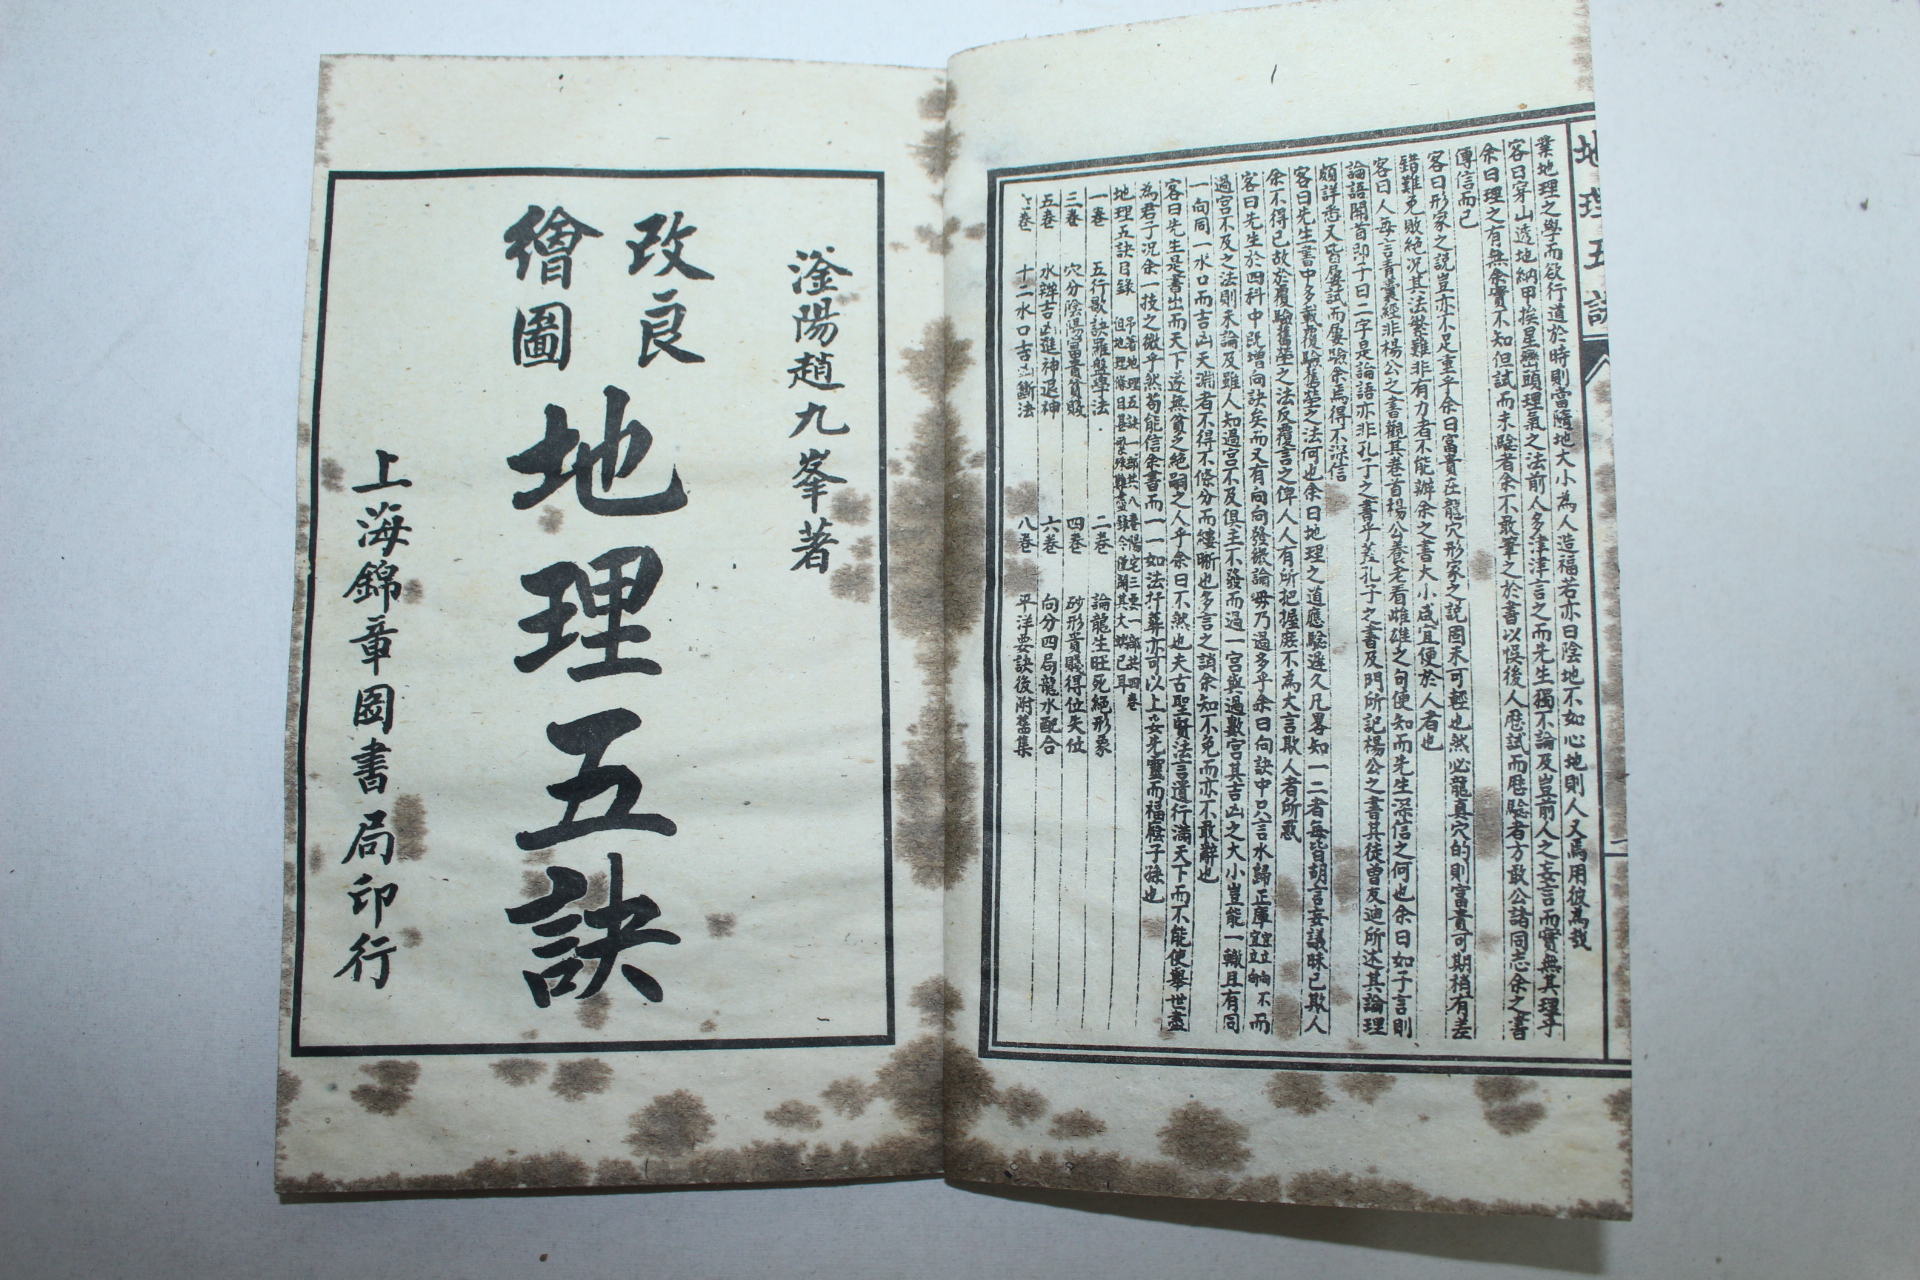 滏陽趙九峯著
改良
繪圖
地理五訣
上海錦章圖書局印行
地理五訣
業地理之學而欲行道於時則當隨地大小為人造福若亦曰陰地不如心地則人又焉用彼為哉
客曰穿山透地納甲挨星巒頭理氣之法前人多津津言之而先生獨不論及豈前人之妄言而實無其理乎
余曰理之有無余實不知但試而未驗者余不敢筆之於書以悞後人歷試而歷驗者方敢公諸同志余之書
傳信而已
客曰形家之說豈亦不足重乎余曰富貴在龍穴形家之說固未可輕也然必龍真穴的則富貴可期稍有差
錯難免敗絕況其法繁難非有力者不能辦余之書大小咸宜便於人者也
客曰人每言青囊經非楊公之書觀其卷首楊公養老看雌雄之句便知而先生深信之何也余曰如子言則
論語開首即子曰二字是論語亦非孔子之書乎蓋孔子之書及門所記楊公之書其徒曾友迪所述其論理
頗詳悉又皆屢試而屢驗余焉得不深信
客曰先生書中多載覆驗舊塋之法何也余曰地理之道應驗遲久凡畧知一二者每皆胡言妄議昧己欺人
余不得已故於覆驗舊塋之法反覆言之俾人人有所把握庶不為大言欺人者所惑
客曰先生於四科中既增向訣矣而又有向向發微論毋乃過多乎余曰向訣中只言水歸正庫宜立向不宜立向而
過宮不及之法則未論及雖人知過宮不及俱主不發而過一宮與過數宮其吉凶之大小豈能一轍且有同
一向同一水口而吉凶天淵者不得不條分而縷晰也多言之誚余知不免而亦不敢辭也
客曰先生是書出而天下遂無貧乏絕嗣之人乎余曰不然也夫古聖賢法言道行滿天下而不能使舉世盡
為君子況余一技之微乎然苟能信余書而一一如法扦葬亦可以上妥先靈而福廕子孫也
地理五訣目錄
一卷 五行歌訣羅盤學法 二卷 論龍生旺死絕形象
三卷 穴分陰陽富貴貧賤 四卷 砂形貴賤得位失位
五卷 水辨吉凶進神退神 六卷 向分四局龍水配合
卷 十二水口吉凶斷法 八卷 平洋要訣後附蓋集